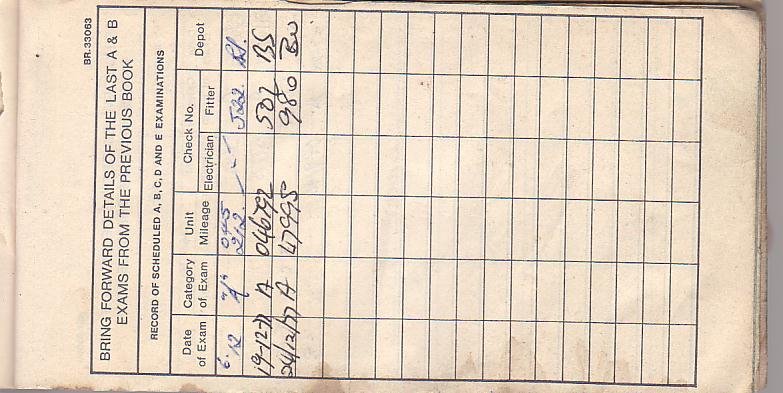 BR.33063
BRING FORWARD DETAILS OF THE LAST A & B
EXAMS FROM THE PREVIOUS BOOK
RECORD OF SCHEDULED A, B, C, D AND E EXAMINATIONS
Date of Exam Category of Exam Unit Mileage Check No. Electrician Fitter Depot
6/12 212.
19-12-77 A 046792 502 BS
24/12/77 A 47995 980 BU